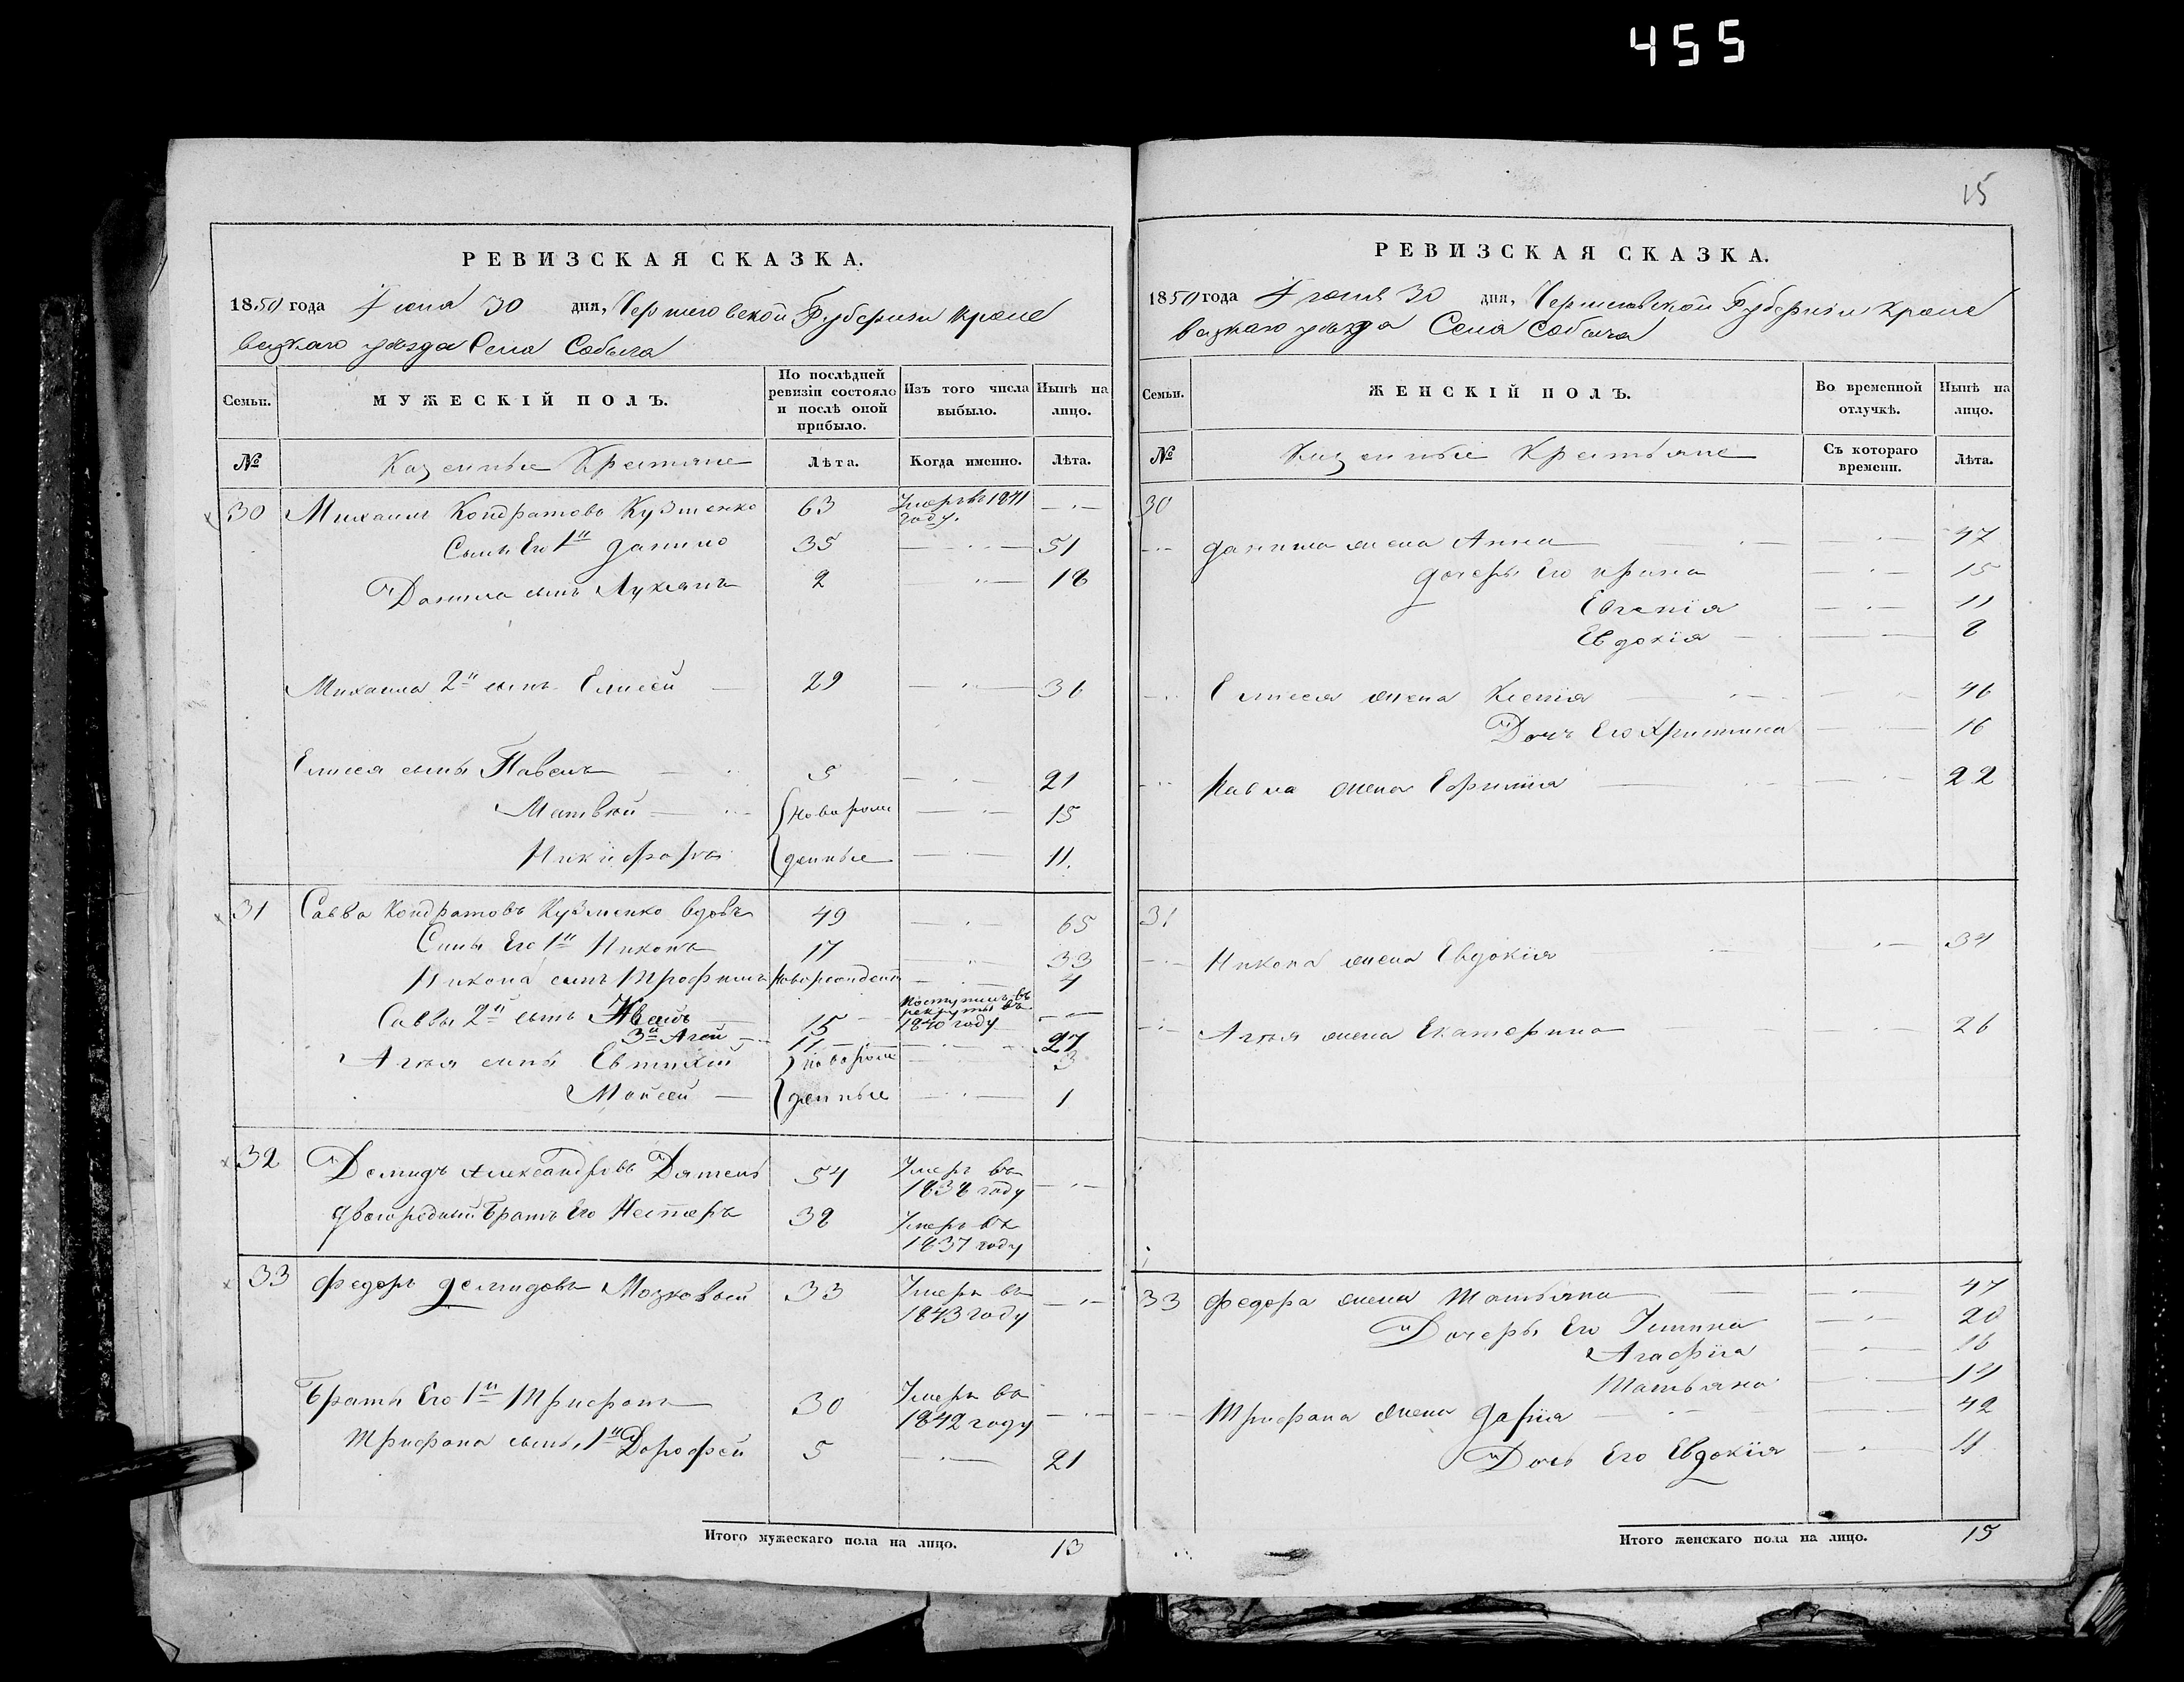 455
РЕВИЗСКАЯ СКАЗКА.
1850 года Іюня 30 дня, Черниговской Губерніи Кроле
вецкаго уѣзда Села Собыча
Семьи.
МУЖЕСКІЙ ПОЛЪ.
По послѣдней ревизіи состояло и послѣ оной прибыло.
Изъ того числа выбыло.
Нынѣ на лицо.
№
Казенные Крестьяне
Лѣта.
Когда именно.
Лѣта.
30 Михаилъ Кондратовъ Кузменко 63 Умеръ въ 1841 году. —
Сынъ Его 1й Данило 35 — 51
Данила сынъ Лукьянъ 2 — 18
Михаила 2й сынъ Елисей — 29 — 36
Елисея сыны Павелъ — 5 — 21
Матвѣй — новорож — 15
Никифоръ денные — 11.
31 Савва Кондратовъ Кузменко вдовъ 49 — 65
Сынъ Его 1й Никонъ 17 — 33
Никона сынъ Трофимъ Новорожденъ — 4
Саввы 2й сынъ Иванъ — 15 — Поступилъ въ рекруты въ 1840 году —
3й Агей — 11 — 27
Агѣя сыны Евтихій новорож — 3
Моисей — денные — 1
32 Демидъ Александровъ Дятелъ 54 Умеръ въ 1838 году —
Двоюродный Братъ Его Нестеръ 38 Умеръ въ 1837 году
33 Федоръ Демидовъ Мозковый 33 Умеръ въ 1843 году —
Братъ Его 1й Трифонъ 30 Умеръ въ 1842 году —
Трифона сынъ 1й Дорофей 5 — 21
Итого мужескаго пола на лицо. 13
15
РЕВИЗСКАЯ СКАЗКА.
1850 года Іюня 30 дня, Черниговской Губерніи Кроле
вецкаго уѣзда Села Собыча
Семьи.
ЖЕНСКІЙ ПОЛЪ.
Во временной отлучкѣ.
Нынѣ на лицо.
№
Казенные Крестьяне
Съ котораго времени.
Лѣта.
30
Данила жена Анна — 47
Дочери Его Ирина — 15
Евгенія — 11
Евдокія — 8
Елисея жена Ксенія — 46
Дочь Его Христина — 16
Павла жена Ефимія — 22
31
Никона жена Евдокія — 34
Агѣя жена Екатерина — 26
33 Федора жена Татьяна — 47
Дочери Его Устина — 20
Агафія — 16
Татьяна — 14
Трифона жена Дарія — 42
Дочь Его Евдокія — 11
Итого женскаго пола на лицо. 15